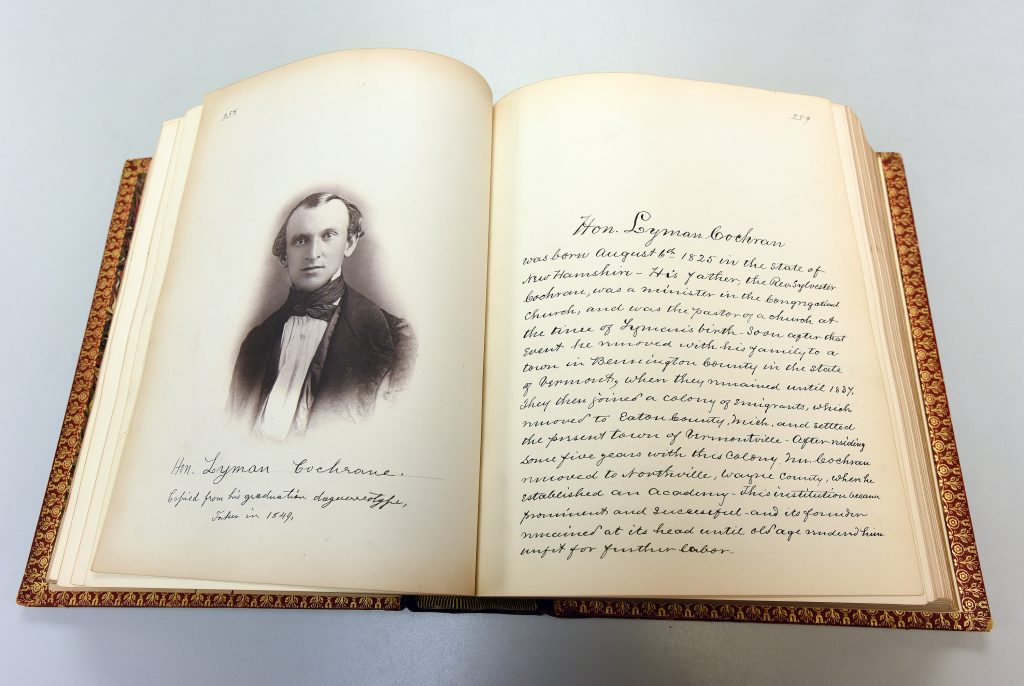 258
Hon. Lyman Cochrane.
Copied from his graduation daguerreotype,
Taken in 1849,
259
Hon. Lyman Cochran
was born August 6th 1825 in the state of
New Hamshire - His father, the Rev. Sylvester
Cochran, was a minister in the Congrigational
church, and was the pastor of a church at
the time of Lyman's birth - Soon after that
event he removed with his family to a
town in Bennington County in the state
of Vermont, when they remained until 1837.
They then joined a colony of Emigrants, which
removed to Eaton County, Mich, and settled
the present town of Vermontville - After residing
some five years with this Colony, Mr. Cochran
removed to Northville, Wayne County, when he
established an Academy - This institution became
prominent and successful - and its founder
remained at its head until old age rendered him
unfit for further labor -